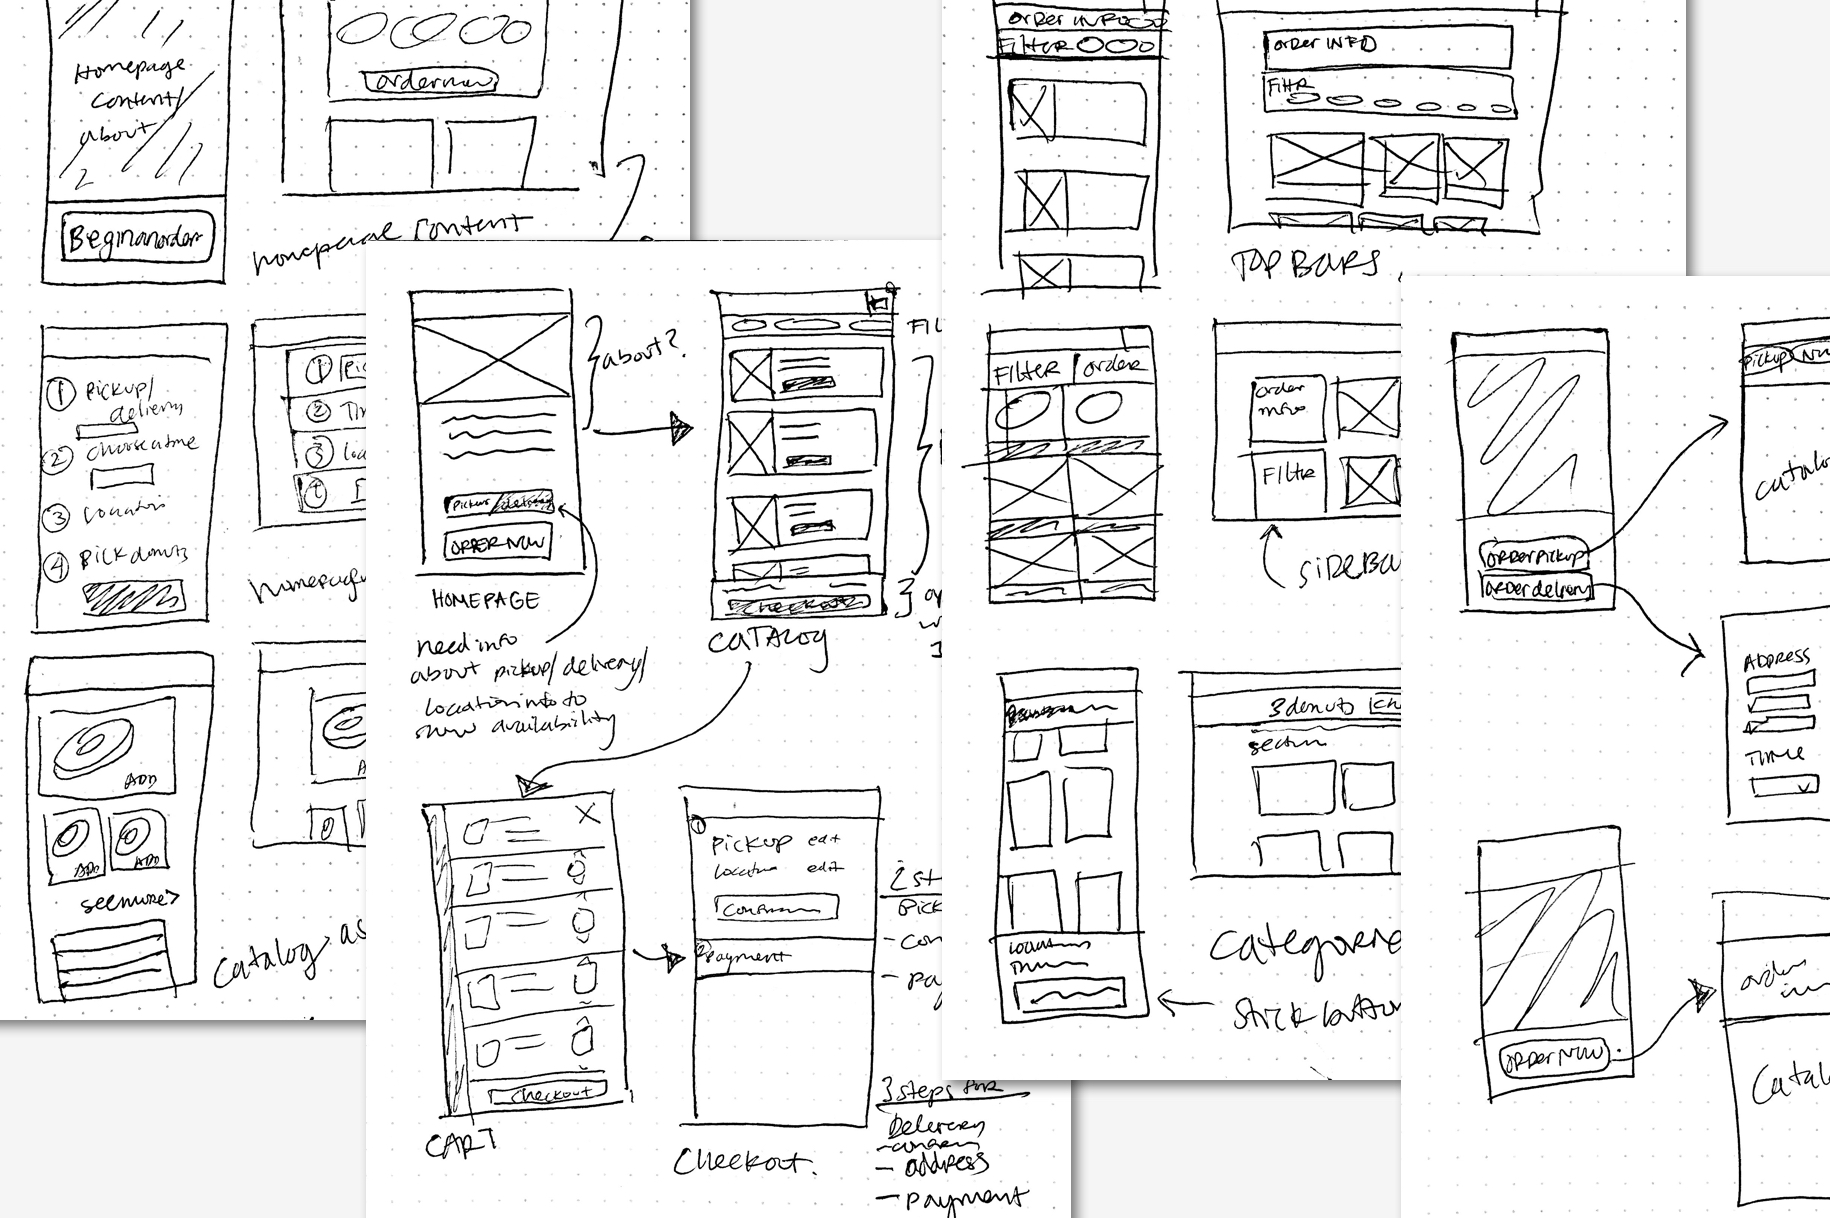 Homepage
Content/
about
Begin an order
order now
homepage content
1 Pickup/
delivery
2 choose a time
3 location
4 Pick donuts
1 Pic
2 Tim
3 Loc
4
homepage
ADD
ADD
ADD
see more >
A
Catalog as
about?
Pickup/delivery
ORDER NOW
HOMEPAGE
need info
about pickup/delivery/
location info to
show availability
FIL
Checkout
CATALOG
X
Checkout
CART
1
Pickup edit
location edit
Confirm
2 Payment
Checkout.
2 st
Pick
- con
- pay
3 steps for
Delivery
- confirm
- address
- payment
order INFO
FILTER
order INFO
FILTR
TOP BARS
FILTER
order
order
info
FILTER
SIDEBA
3 donuts
section
location
Categorie
Stick button
order pickup
order delivery
Pickup
NOW
Catalo
ADDRESS
TIME
ORDER NOW
order
Catal